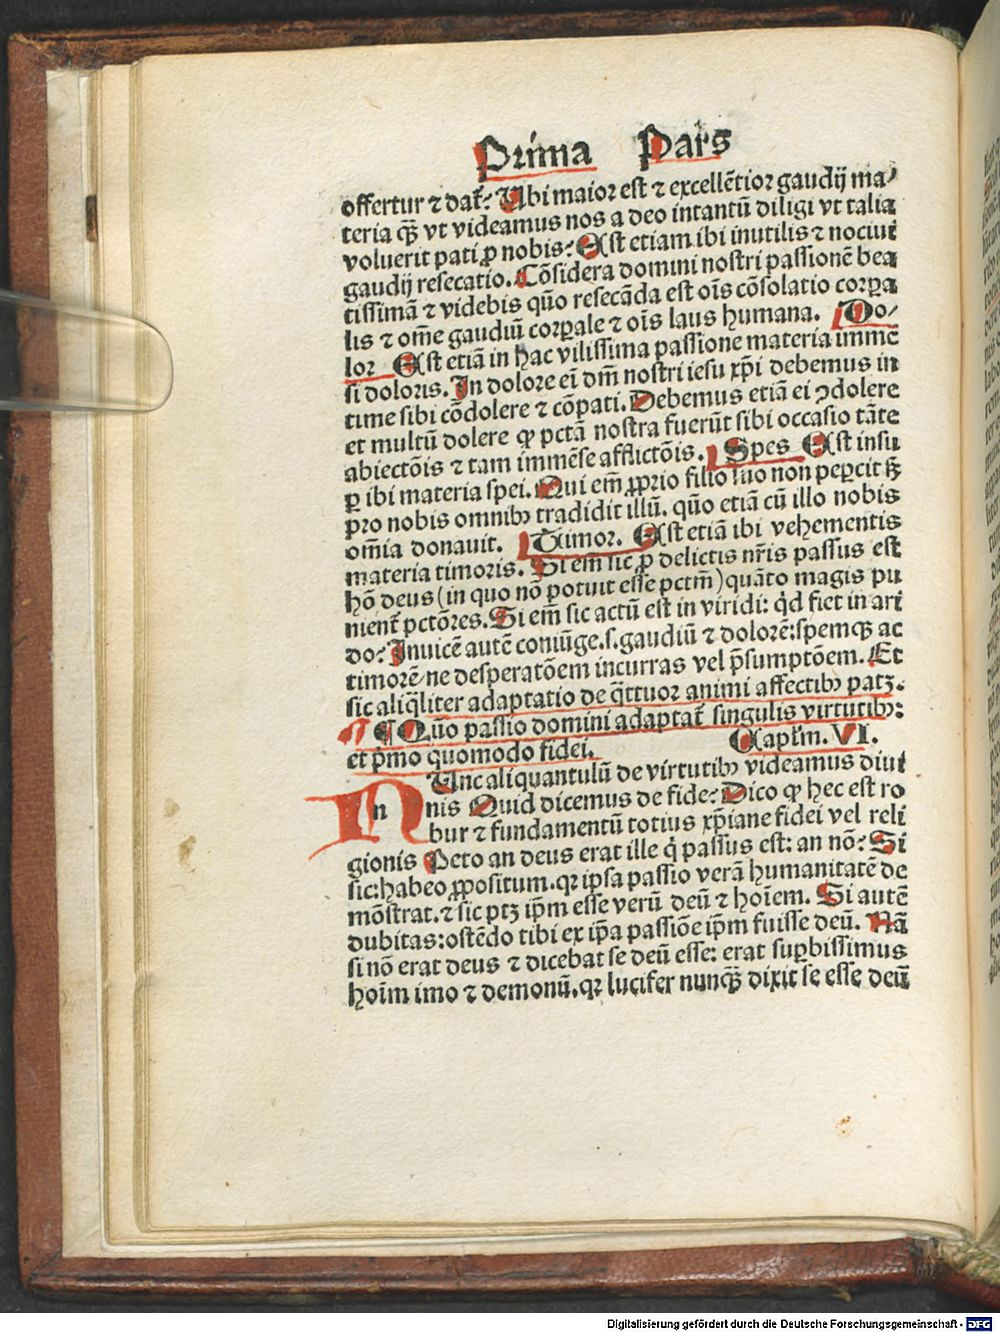 Prima Pars
offertur ⁊ dať? Ubi maior est ⁊ excellẽtior gaudij ma⸗
teria q̃ȝ vt videamus nos a deo intantũ diligi vt talia
voluerit pati ꝓ nobis? Est etiam ibi inutilis ⁊ nociui
gaudij resecatio. Cõsidera domini nostri passionẽ bea
tissimã ⁊ videbis quõ resecãda est oĩs cõsolatio corꝑa
lis ⁊ om̃e gaudiũ corꝑale ⁊ oĩs laus humana. Do⸗
lor Est etiã in hac vilissima passione materia immẽ
si doloris. In dolore eĩ dñi nostri iesu xp̃i debemus in
time sibi cõdolere ⁊ cõpati. Debemus etiã ei ꝯdolere
et multũ dolere ꝙ pctã nostra fuerũt sibi occasio tãte
abiectõis ⁊ tam immẽse afflictõis. Spes Est insu
ꝑ ibi materia spei. Qui em̃ ꝓprio filio suo non peꝑcit sꝫ
pro nobis omnibꝰ tradidit illũ. quõ etiã cũ illo nobis
om̃ia donauit. Timor. Est etiã ibi vehementis
materia timoris. Si em̃ sic ꝓ delictis nr̃is passus est
hõ deus (in quo nõ potuit esse pctm̃) quãto magis pu
nienť pctõres. Si em̃ sic actũ est in viridi: qͥd fiet in ari
do? Inuicẽ autẽ coniũge.s.gaudiũ ⁊ dolorẽ:spemqꝫ ac
timorẽ/ne desperatõem incurras vel p̃sumptõem. Et
sic aliq̃liter adaptatio de q̃ttuor animi affectibꝰ patꝫ.
¶ Quõ passio domini adaptať singulis virtutibꝰ:
et p̃mo quomodo fidei. Caplm̃. VI.
Nunc aliquantulũ de virtutibꝰ videamus diui
nis Quid dicemus de fide? Dico ꝙ hec est ro
bur ⁊ fundamentũ totius xp̃iane fidei vel reli
gionis Peto an deus erat ille qͥ passus est: an nõ? Si
sic:habeo ꝓpositum.qꝛ ipsa passio verã humanitatẽ de
mõstrat.⁊ sic ptꝫ ip̃m esse verũ deũ ⁊ hoĩem. Si autẽ
dubitas:ostẽdo tibi ex ip̃a passiõe ip̃m fuisse deũ. Nã
si nõ erat deus ⁊ dicebat se deũ esse: erat suꝑbissimus
hoĩm imo ⁊ demonũ.qꝛ lucifer nunq̃ȝ dixit se esse deũ
Digitalisierung gefördert durch die Deutsche Forschungsgemeinschaft - DFG